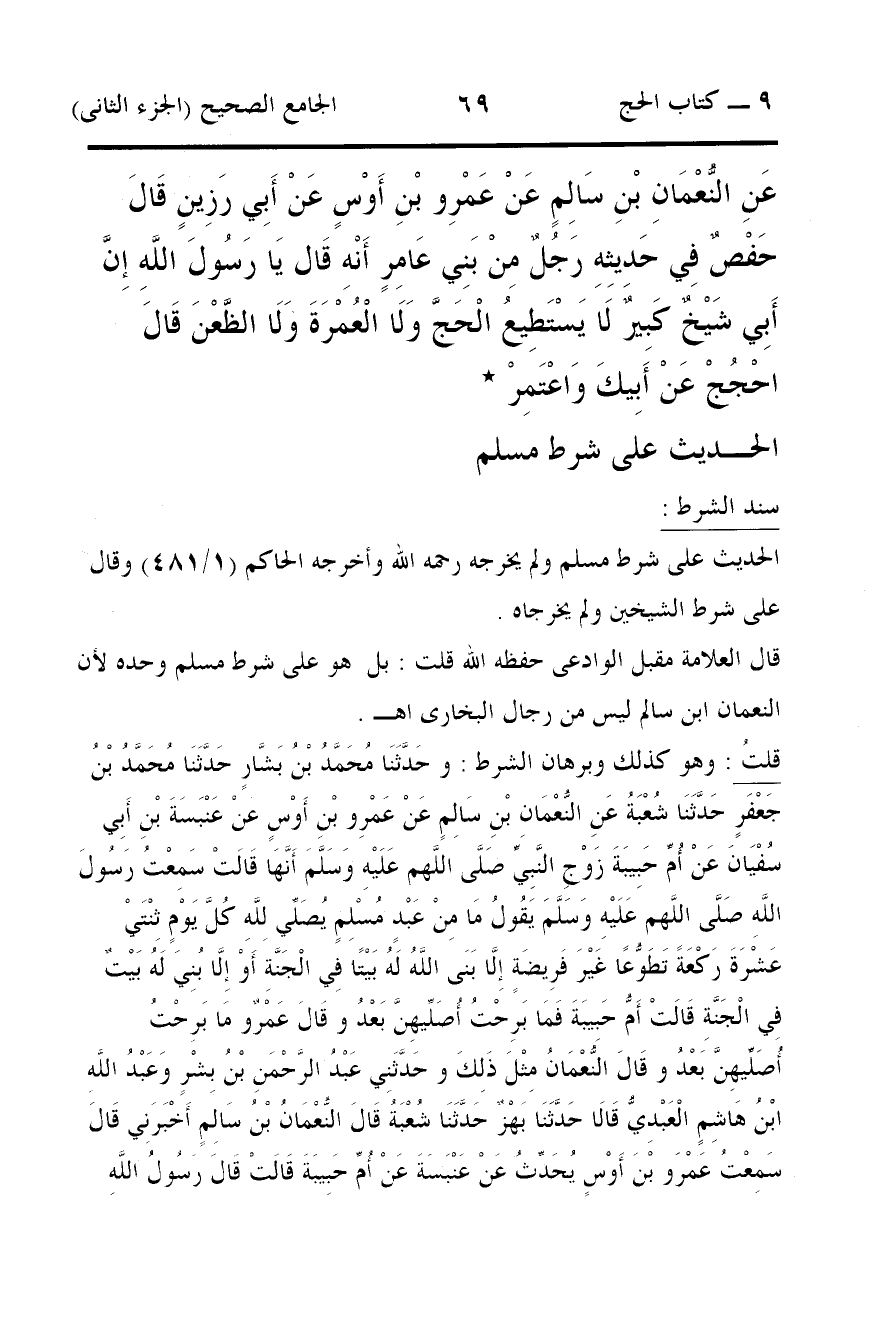 ٩ ــ كتاب الحج ٦٩ الجامع الصحيح (الجزء الثانى)
عَنِ النُّعْمَانِ بْنِ سَالِمٍ عَنْ عَمْرِو بْنِ أَوْسٍ عَنْ أَبِي رَزِينٍ قَالَ
حَفْصٌ فِي حَدِيثِهِ رَجُلٌ مِنْ بَنِي عَامِرٍ أَنَّه قَالَ يَا رَسُولَ اللَّهِ إِنَّ
أَبِي شَيْخٌ كَبِيرٌ لَا يَسْتَطِيعُ الْحَجَّ وَلَا الْعُمْرَةَ وَلَا الظَّعْنَ قَالَ
احْجُجْ عَنْ أَبِيكَ وَاعْتَمِرْ *
الحـــديث على شرط مسلم
سند الشرط :
الحديث على شرط مسلم ولم يخرجه رحمه الله وأخرجه الحاكم (٤٨١/١) وقال
على شرط الشيخين ولم يخرجاه .
قال العلامة مقبل الوادعى حفظه الله قلت : بل هو على شرط مسلم وحده لأن
النعمان ابن سالم ليس من رجال البخارى اهــ .
قلتُ : وهو كذلك وبرهان الشرط : و حَدَّثَنَا مُحَمَّدُ بْنُ بَشَّارٍ حَدَّثَنَا مُحَمَّدُ بْنُ
جَعْفَرٍ حَدَّثَنَا شُعْبَةُ عَنِ النُّعْمَانِ بْنِ سَالِمٍ عَنْ عَمْرِو بْنِ أَوْسٍ عَنْ عَنْبَسَةَ بْنِ أَبِي
سُفْيَانَ عَنْ أُمِّ حَبِيبَةَ زَوْجِ النَّبِيِّ صَلَّى اللهم عَلَيْهِ وَسَلَّمَ أَنَّهَا قَالَتْ سَمِعْتُ رَسُولَ
اللَّهِ صَلَّى اللهم عَلَيْهِ وَسَلَّمَ يَقُولُ مَا مِنْ عَبْدٍ مُسْلِمٍ يُصَلِّي لِلَّهِ كُلَّ يَوْمٍ ثِنْتَيْ
عَشْرَةَ رَكْعَةً تَطَوُّعًا غَيْرَ فَرِيضَةٍ إِلَّا بَنَى اللَّهُ لَهُ بَيْتًا فِي الْجَنَّةِ أَوْ إِلَّا بُنِيَ لَهُ بَيْتٌ
فِي الْجَنَّةِ قَالَتْ أُمُّ حَبِيبَةَ فَمَا بَرِحْتُ أُصَلِّيهِنَّ بَعْدُ و قَالَ عَمْرٌو مَا بَرِحْتُ
أُصَلِّيهِنَّ بَعْدُ و قَالَ النُّعْمَانُ مِثْلَ ذَلِكَ و حَدَّثَنِي عَبْدُ الرَّحْمَنِ بْنُ بِشْرٍ وَعَبْدُ اللَّهِ
ابْنُ هَاشِمٍ الْعَبْدِيُّ قَالَا حَدَّثَنَا بَهْزٌ حَدَّثَنَا شُعْبَةُ قَالَ النُّعْمَانُ بْنُ سَالِمٍ أَخْبَرَنِي قَالَ
سَمِعْتُ عَمْرَو بْنَ أَوْسٍ يُحَدِّثُ عَنْ عَنْبَسَةَ عَنْ أُمِّ حَبِيبَةَ قَالَتْ قَالَ رَسُولُ اللَّهِ